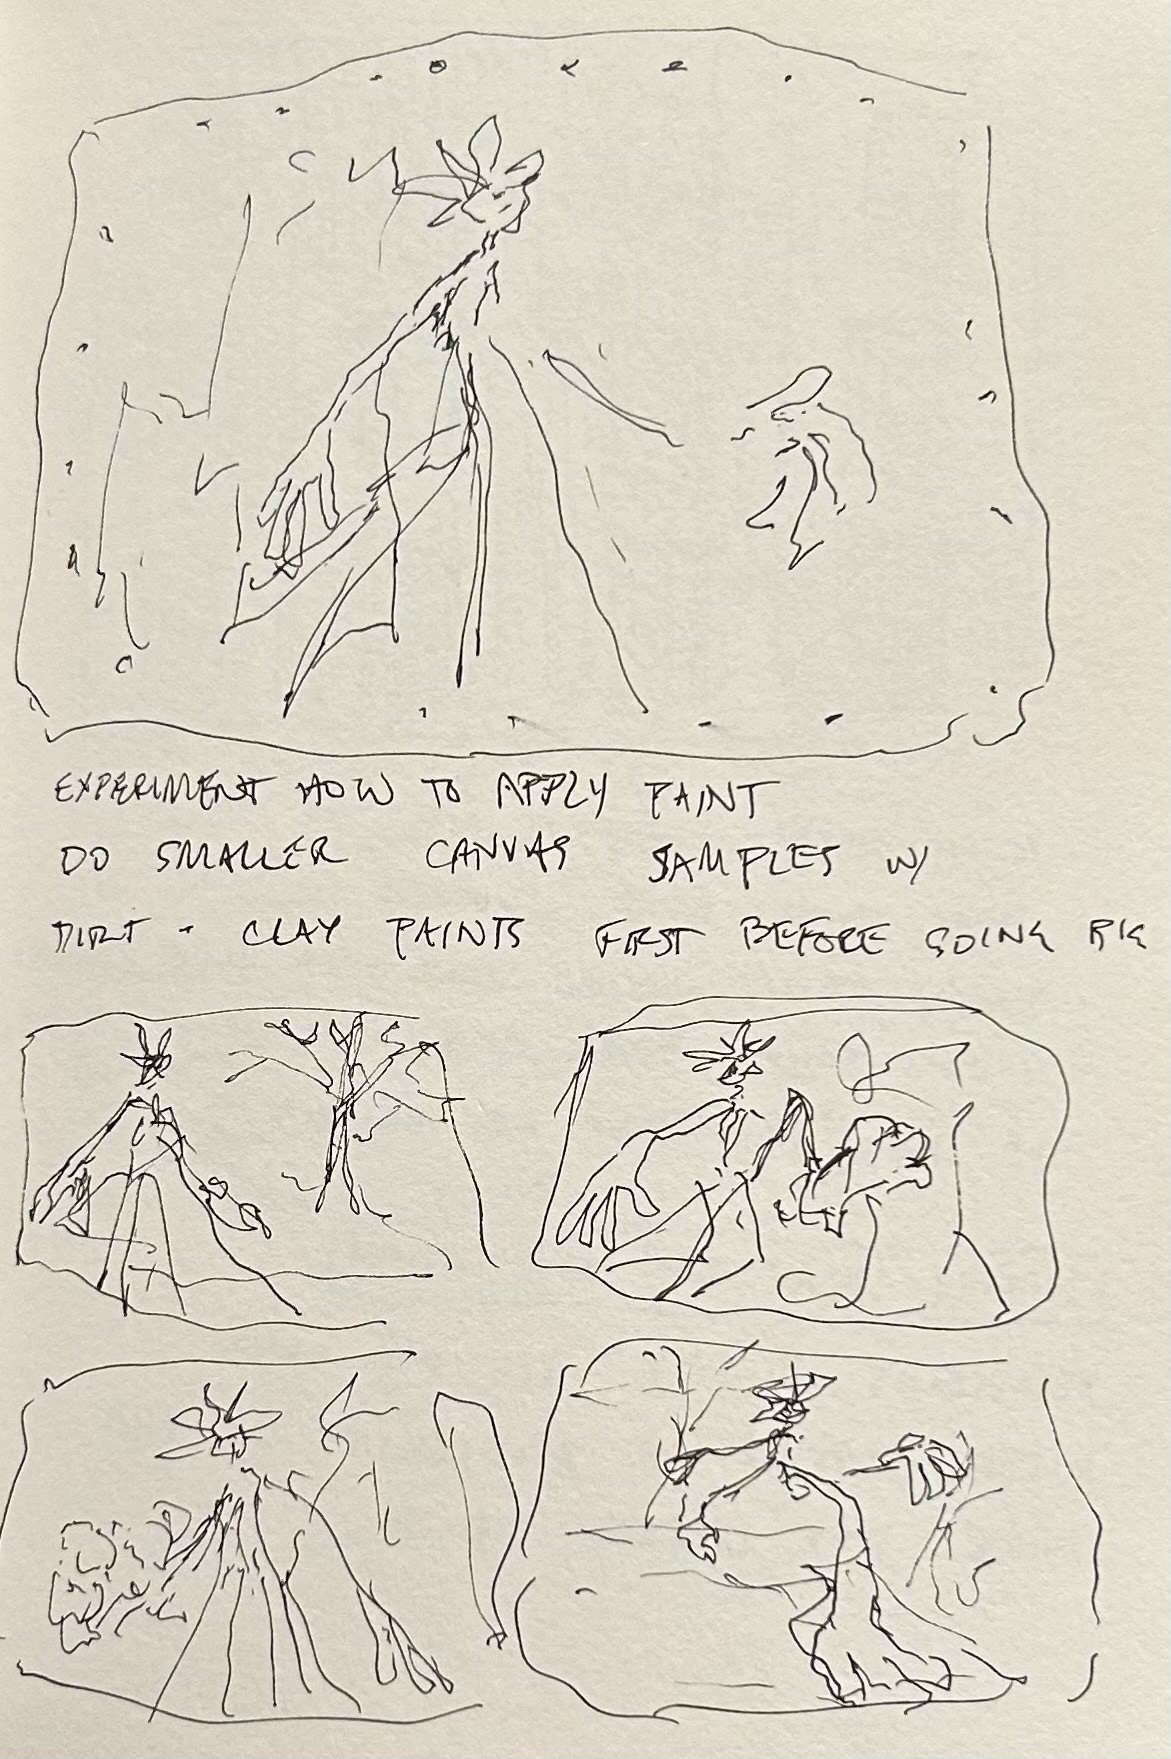 EXPERIMENT HOW TO APPLY PAINT
DO SMALLER CANVAS SAMPLES W/
DIRT - CLAY PAINTS FIRST BEFORE GOING BIG